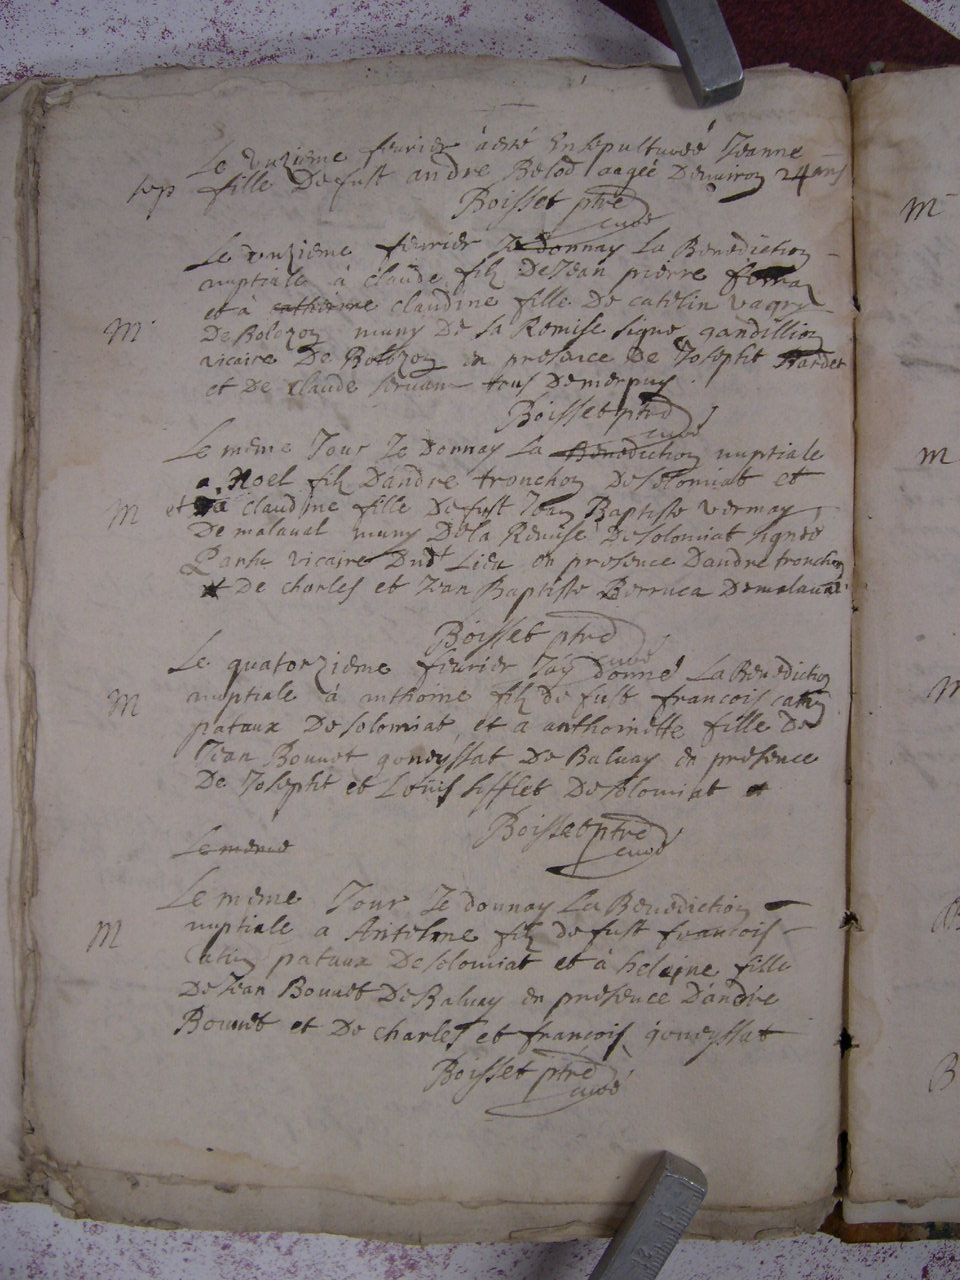 Le unzieme feurier à esté Ensepulturéé Jeanne
sep fille De fust andre Belod aagéé Denuiron 24 ans
Boisset ptre
curé
Le unzieme feurier Je donnay La Benediction
nuptiale à claude filz De Jean pierre
et à catherine claudine fille De catelin vagry
M De Bolozon muny De la Remise signe gandillion
vicaire De Bolozon en presence De Joseph Bardet
et De claude seruan tous De merpuis
Boisset ptre
curé
Le meme Jour Je Donnay La Benediction nuptiale
a Noel filz D'andre tronchon De solomiat et
M et à claudine fille De fust Jean Baptiste vermay
De malaual muny De la Remise De solomiat signéé
vicaire Dud Lieu en presence D'andre tronchon
De charles et Jean Baptiste Berruca De malaual
Boisset ptre
curé
Le quatorzieme feurier J'ay donné La Benediction
M nuptiale à anthoine filz de fust francois catin
pataux De solomiat et a anthoinette fille De
Jean Bonnet goneyssat De Baluay en presence
De Joseph et Louis sifflet De solomiat
Boisset ptre
curé
Le meme
Le meme Jour Je donnay La Benediction
M nuptiale a Antelme filz de fust francois
catin pataux De solomiat et à heleine fille
De Jean Bonnet De Baluay en presence D'andre
Bonnet et De charles et francois goneyssat
Boisset ptre
curé
M
M
M
B
B